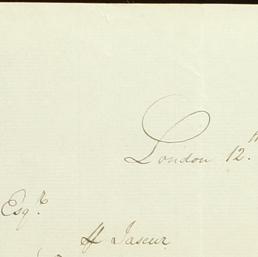 London 12.th
Esqr.
H Jaseur